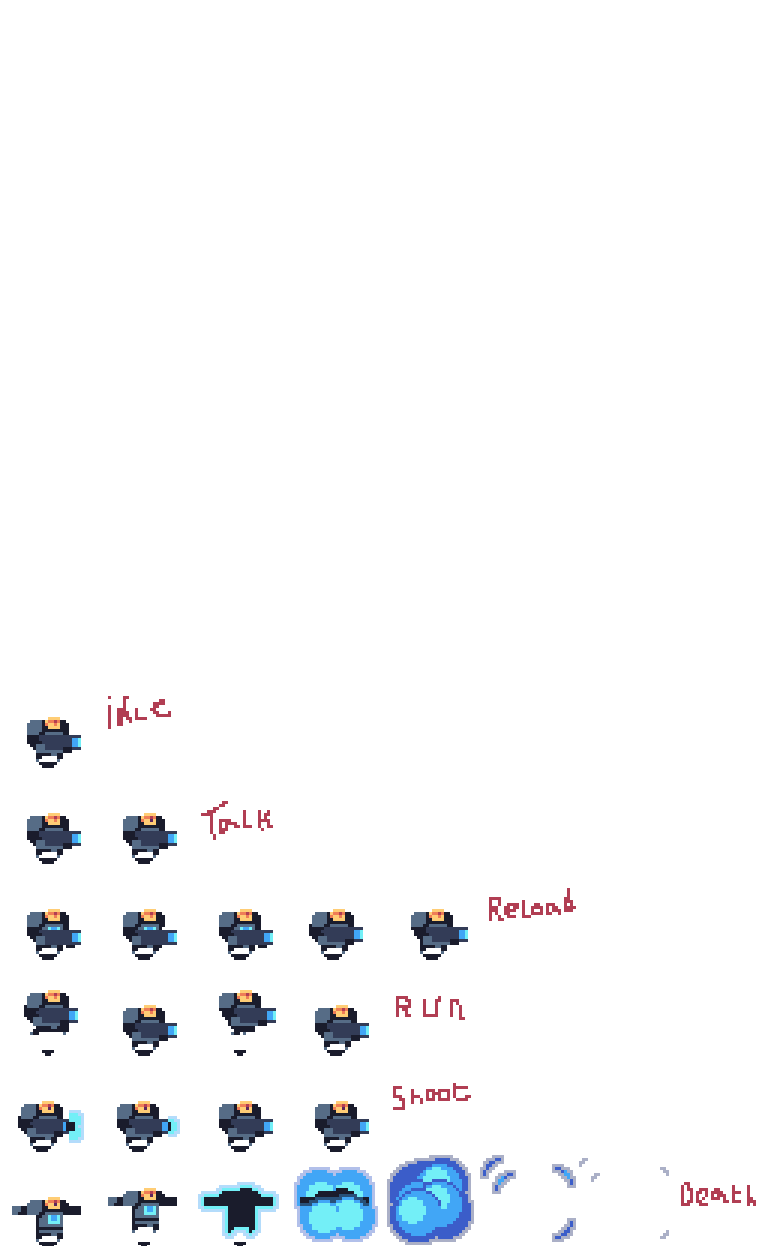 idLe
TaLK
ReLoad
RUn
Shoot
Death